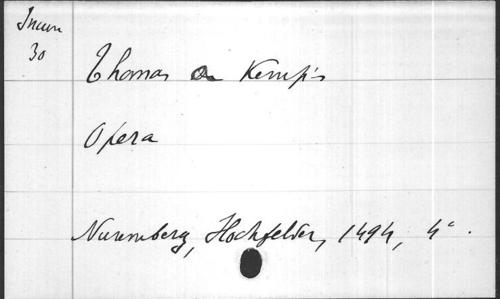 Incun
30
Thomas a Kempis
Opera
Nuremberg, Hochfelder, 1494, 4°.